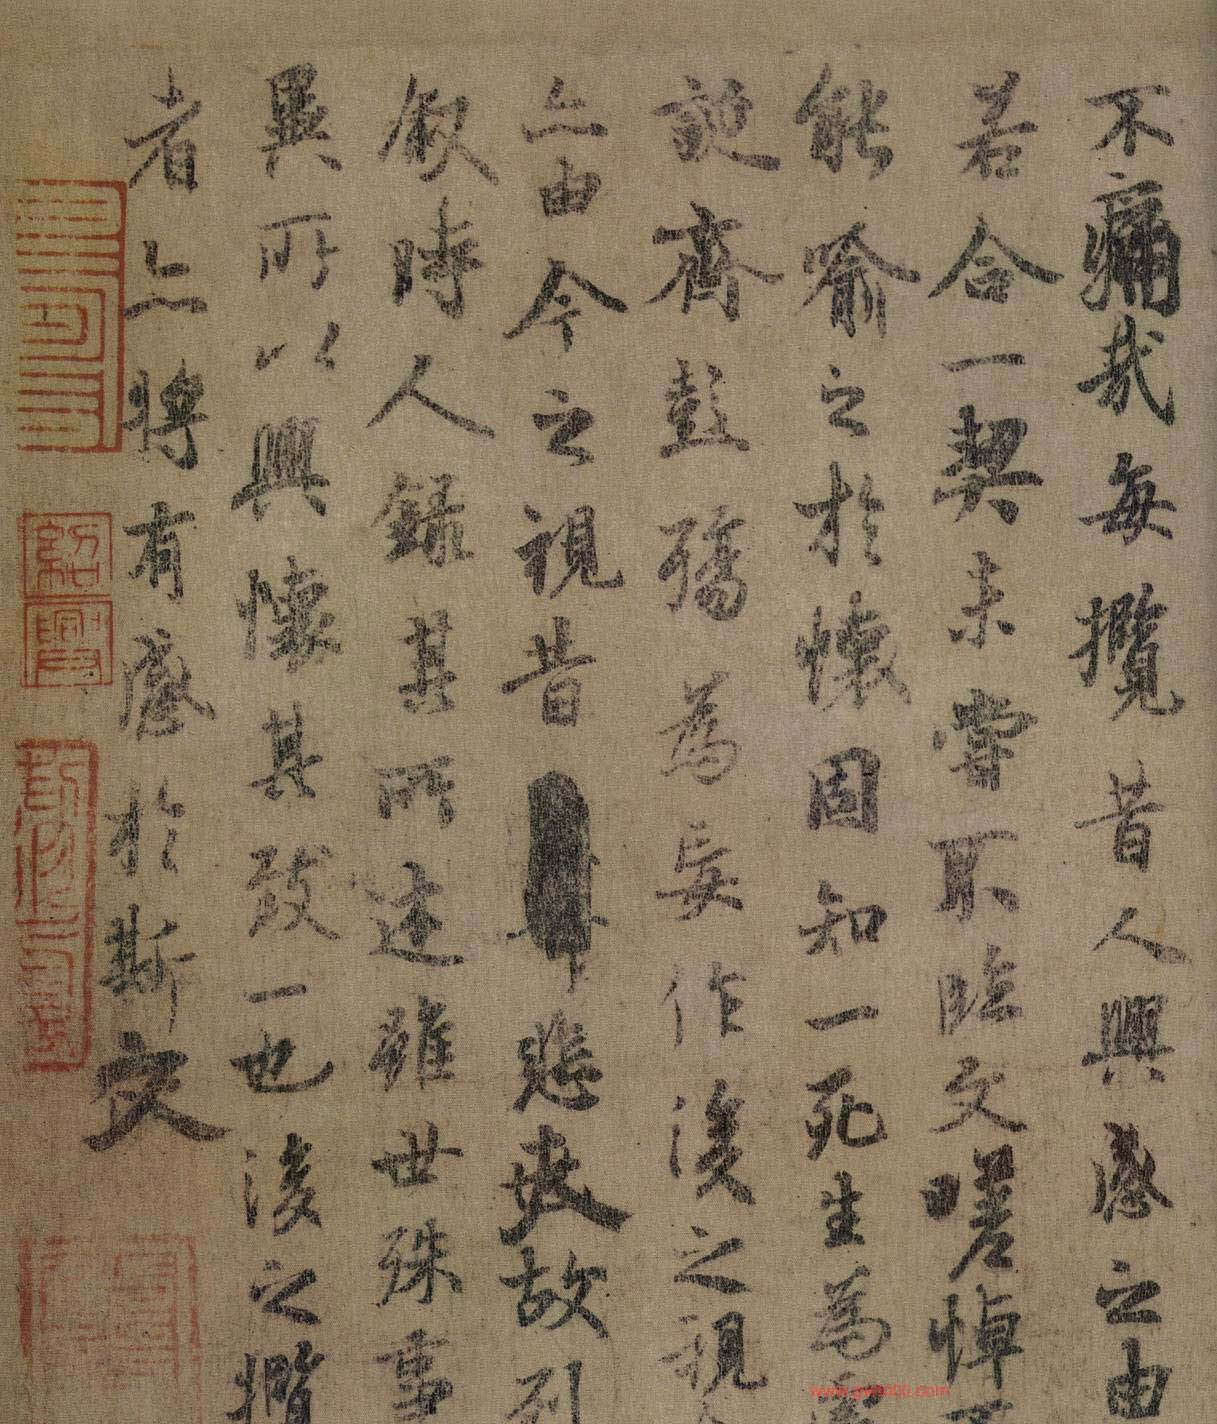 不痛哉每攬昔人興感之由
若合一契未嘗不臨文嗟悼
能喻之於懷固知一死生為
誕齊彭殤為妄作後之視
亦由今之視昔悲夫故列
叙時人錄其所述雖世殊事
異所以興懷其致一也後之攬
者亦將有感於斯文